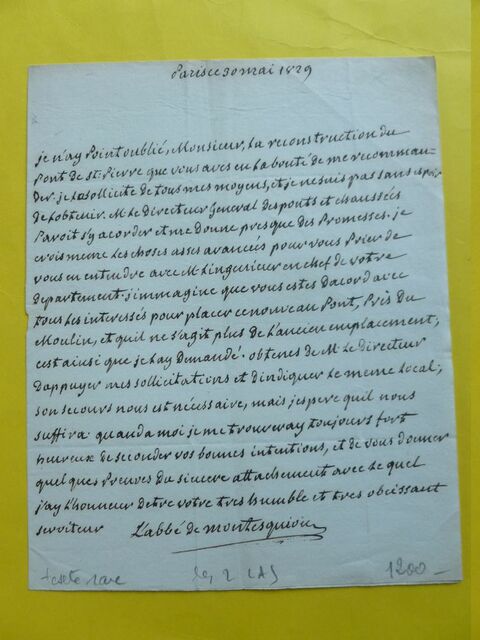 Paris ce 30 mai 1829
je n'ay Point oublié, Monsieur, la reconstruction du
Pont de st. Pierre que vous aves eu la bonté de me recomman-
der. je la sollicite de tous mes moyens, et je ne suis pas sans espoir
de l'obtenir. M. Le Directeur General des ponts et chaussées
Paroit s'y acorder et me donne presque des Promesses. je
crois meme les choses asses avancées pour vous Prier de
vous en entendre avec M. l'ingenieur en chef de votre
departement. j'immagine que vous estes dacord avec
tous les interessés pour placer ce nouveau Pont, Près du
Moulin, et quil ne s'agit plus de l'ancien emplacement;
cest ainsi que je l'ay demandé. obtenes de M. Le directeur
d'appuyer mes sollicitations et d'indiquer le meme local;
son secours nous est nécessaire, mais j'espere quil nous
suffira. quand a moi je me trouveray toujours fort
heureux de seconder vos bonnes intentions, et de vous donner
quelques Preuves du sincere attachement avec le quel
j'ay l'honneur detre votre tres humble et tres obeissant
serviteur L'abbé de montesquiou
2 LAS 1200 -